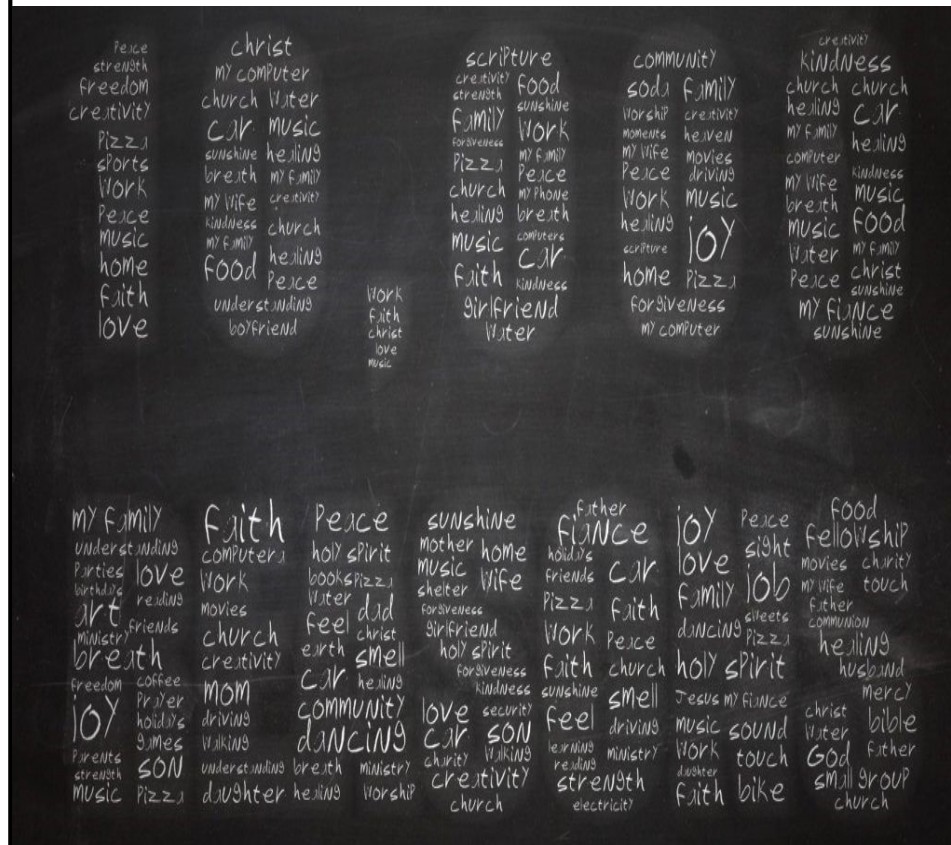 Peace
strength
freedom
creativity
Pizza
sports
Work
Peace
music
home
faith
love
christ
my computer
church Water
car music
sunshine healing
breath my family
my wife creativity
kindness church
my family healing
food Peace
understanding
boyfriend
Work
faith
christ
love
music
scripture
creativity food
strength sunshine
family Work
forgiveness my family
Pizza Peace
church my Phone
healing breath
music computers
car
faith kindness
girlfriend
Water
community
soda family
worship creativity
moments heaven
my wife movies
Peace driving
Work music
healing joy
scripture
home Pizza
forgiveness
my computer
creativity
kindness
church church
healing car
my family healing
computer kindness
my wife music
breath food
music my family
Water christ
Peace sunshine
my fiance
sunshine
my family
understanding
Parties love
birthdays reading
art friends
ministry
breath
freedom coffee
joy Prayer
holidays
games
Parents son
strength
music Pizza
faith
computers
Work
movies
church
creativity
mom
driving
walking
understanding
daughter
Peace
holy spirit
books Pizza
Water dad
feel christ
earth smell
car healing
community
dancing
breath ministry
healing worship
sunshine
mother home
music wife
shelter
forgiveness
girlfriend
holy spirit
forgiveness
kindness
love security
car son
charity walking
creativity
church
father
fiance
holidays car
friends
Pizza faith
Work Peace
faith church
sunshine smell
feel driving
learning ministry
reading
strength
electricity
joy Peace
love sight
family job
sweets
dancing Pizza
holy spirit
Jesus my fiance
music sound
Work touch
daughter
faith bike
food
fellowship
movies charity
my wife touch
father
communion
healing
husband
mercy
christ bible
Water
God father
small group
church